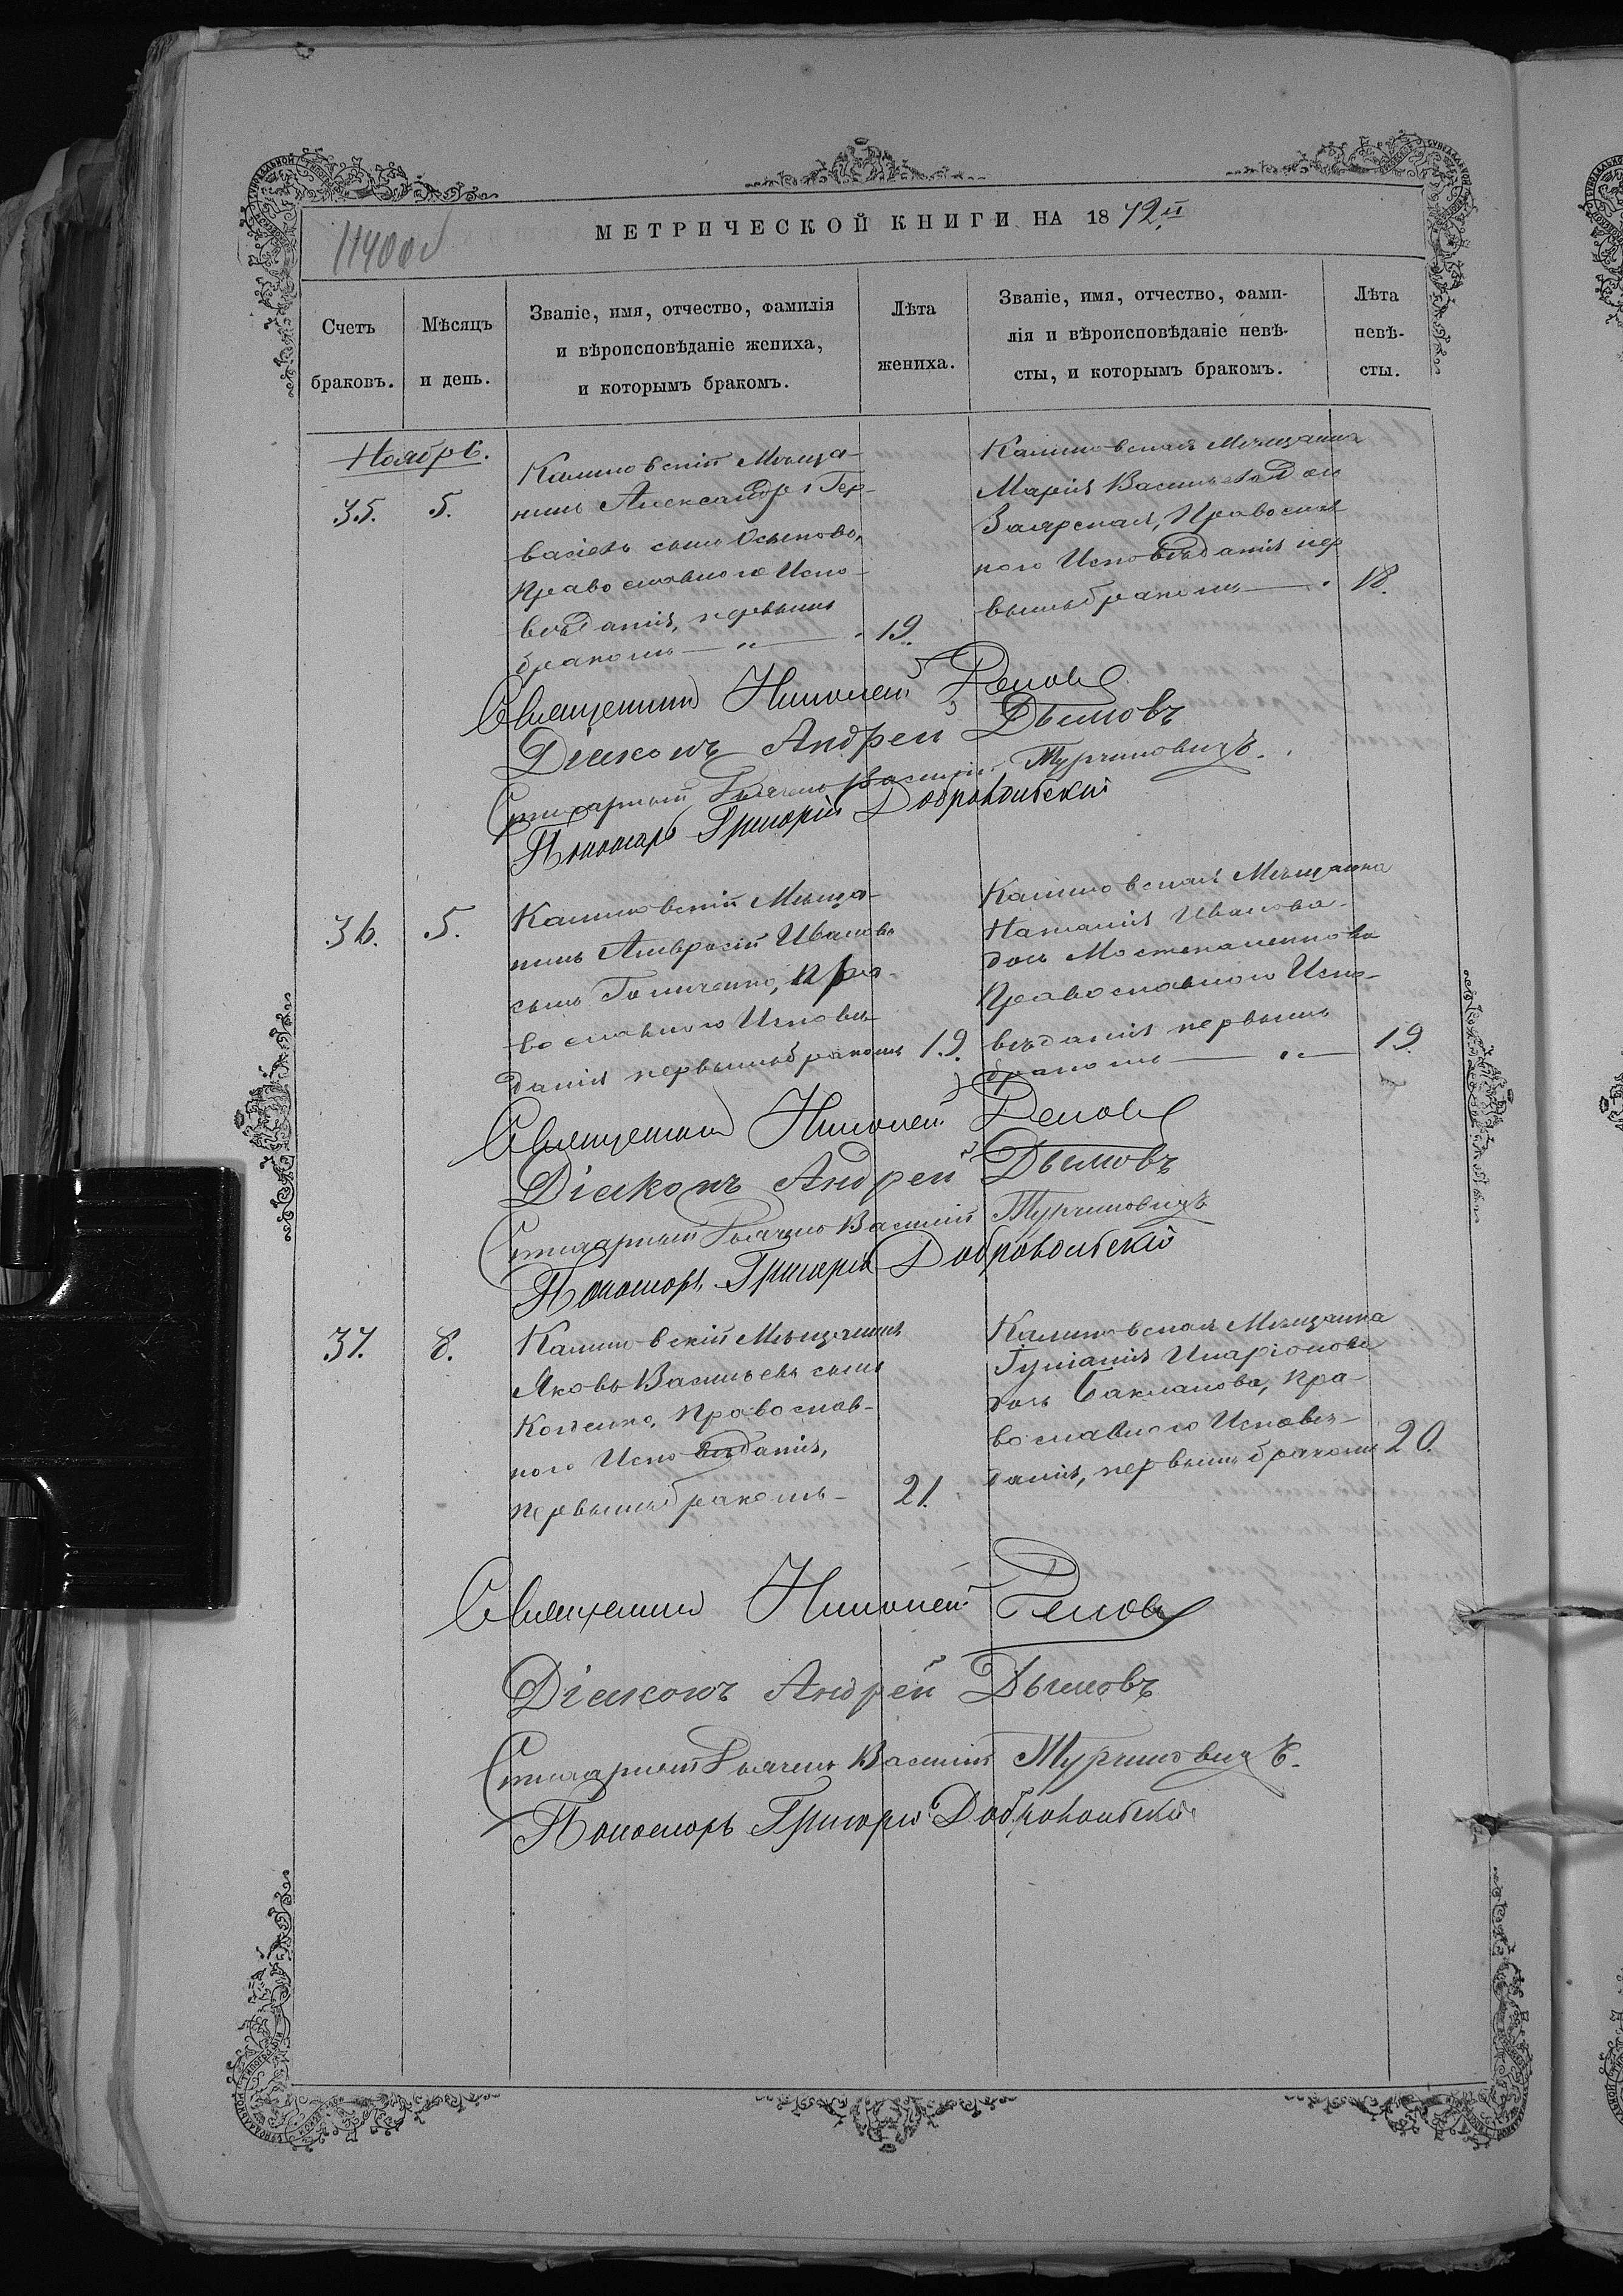 МЕТРИЧЕСКОЙ КНИГИ НА 1872й
1140об
Счетъ браковъ.
Мѣсяцъ и день.
Званіе, имя, отчество, фамилія
и вѣроисповѣданіе жениха,
и которымъ бракомъ.
Лѣта
жениха.
Званіе, имя, отчество, фами-
лія и вѣроисповѣданіе невѣ-
сты, и которымъ бракомъ.
Лѣта
невѣ-
сты.
Ноябрь.
35. 5.
Мѣща-
нинъ Александръ Гер-
васіевъ сынъ Осипова,
Православнаго Испо-
вѣданія, первымъ
бракомъ — „ — 19.
Мѣщанка
Марія Васильева Дочь
Заярская, Православ
ного Исповѣданія пер
вымъ бракомъ — 18.
Священникъ Николай
Діаконъ Андрей Дымовъ
Стихарный Василій Турчиновичъ.
Пономарь Григорій Добровольскій
36. 5.
Мѣща-
нинъ Амвросій Ивановъ
сынъ Пра-
вославного Исповѣ-
данія первымъ бракомъ 19.
Мѣщанка
Наталія Иванова
дочь
Православного Испо-
вѣданія первымъ
бракомъ — „ — 19.
Священникъ Николай
Діаконъ Андрей Дымовъ
Стихарный Василій Турчиновичъ
Пономарь Григорій Добровольскій
37. 8.
Мѣщанинъ
Яковъ Васильевъ сынъ
Православ-
ного Исповѣданія,
первымъ бракомъ — 21.
Мѣщанка
Іуліанія Иларіонова
дочь Бакланова, Пра-
вославного Исповѣ-
данія, первымъ бракомъ 20.
Священникъ Николай
Діаконъ Андрей Дымовъ
Стихарный Василій Турчиновичъ.
Пономарь Григорій Добровольскій